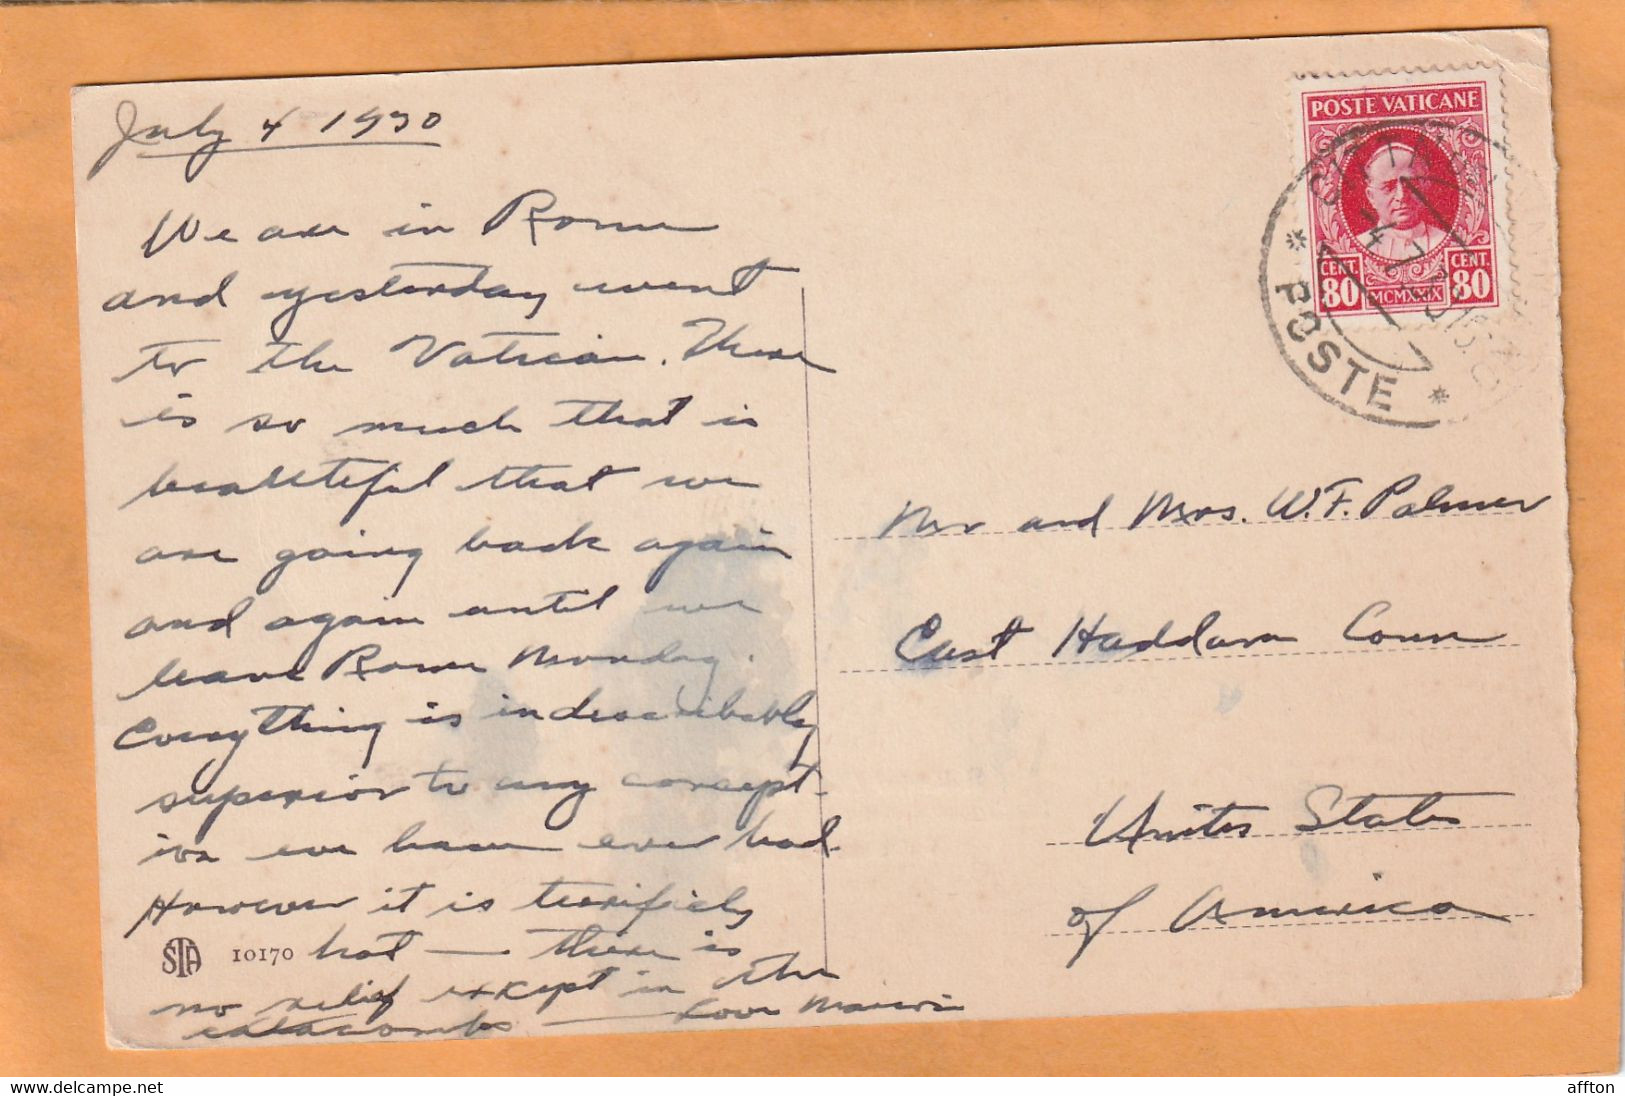 July 4 1930
We are in Rome
and yesterday went
to the Vatican. There
is so much that is
beautiful that we
are going back again
and again until we
leave Rome Monday.
Everything is indescribably
superior to any concept-
ion we have ever had.
However it is terrificly
hot — there is
no relief except in the
catacombs — Love
STA 10170
POSTE VATICANE
CENT. 80
MCMXXIX
CENT. 80
POSTE
Mr and Mrs. W. F. Palmer
East Haddam Conn
United States
of America
affton